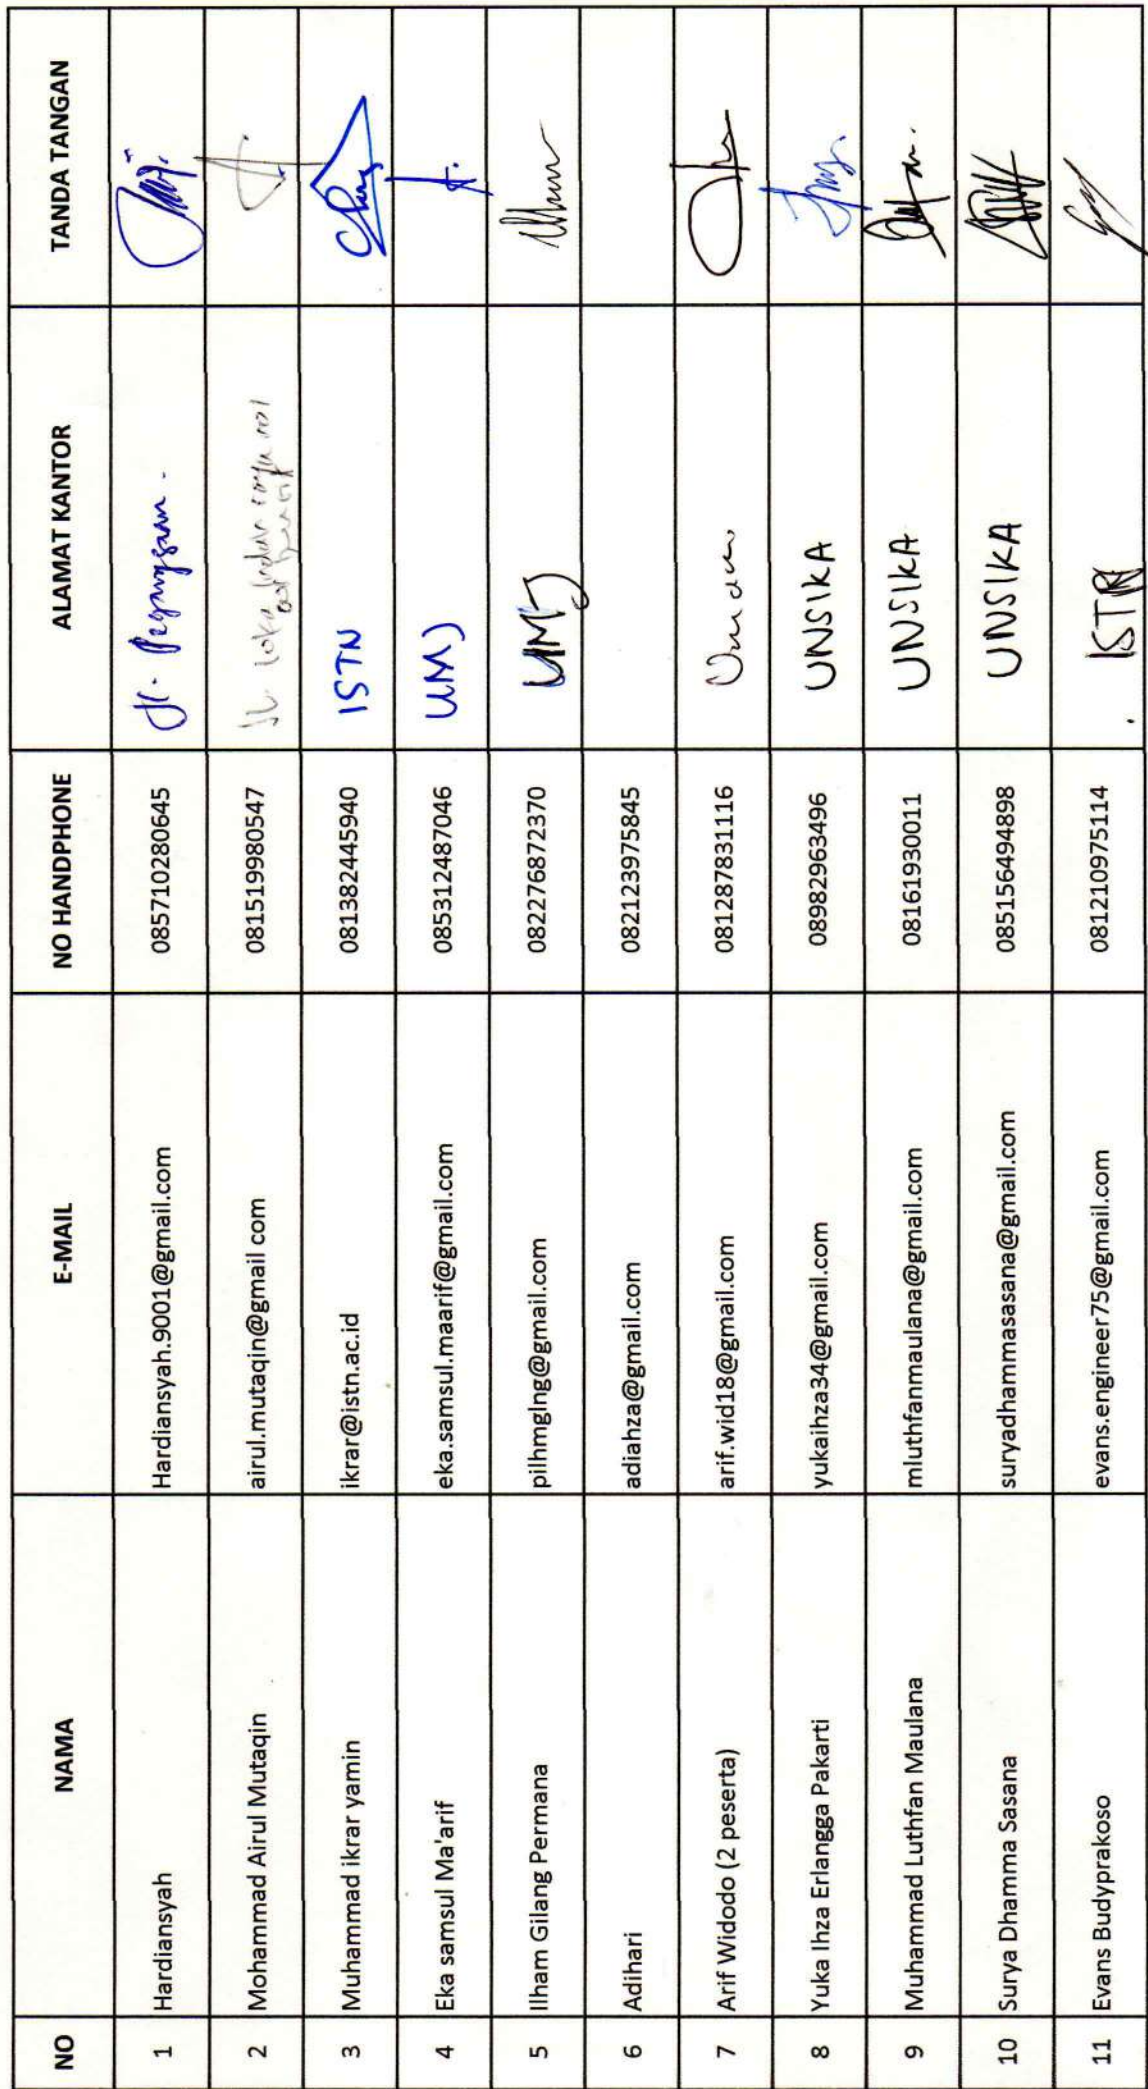 NO NAMA E-MAIL NO HANDPHONE ALAMAT KANTOR TANDA TANGAN
1 Hardiansyah Hardiansyah.9001@gmail.com 085710280645 Jl. Pegangsaan.
2 Mohammad Airul Mutaqin airul.mutaqin@gmail com 081519980547 Jl
3 Muhammad ikrar yamin ikrar@istn.ac.id 081382445940 ISTN
4 Eka samsul Ma'arif eka.samsul.maarif@gmail.com 085312487046 UMJ
5 Ilham Gilang Permana pilhmglng@gmail.com 082276872370 UMJ
6 Adihari adiahza@gmail.com 082123975845
7 Arif Widodo (2 peserta) arif.wid18@gmail.com 081287831116
8 Yuka Ihza Erlangga Pakarti yukaihza34@gmail.com 08982963496 UNSIKA
9 Muhammad Luthfan Maulana mluthfanmaulana@gmail.com 08161930011 UNSIKA
10 Surya Dhamma Sasana suryadhammasasana@gmail.com 085156494898 UNSIKA
11 Evans Budyprakoso evans.engineer75@gmail.com 081210975114